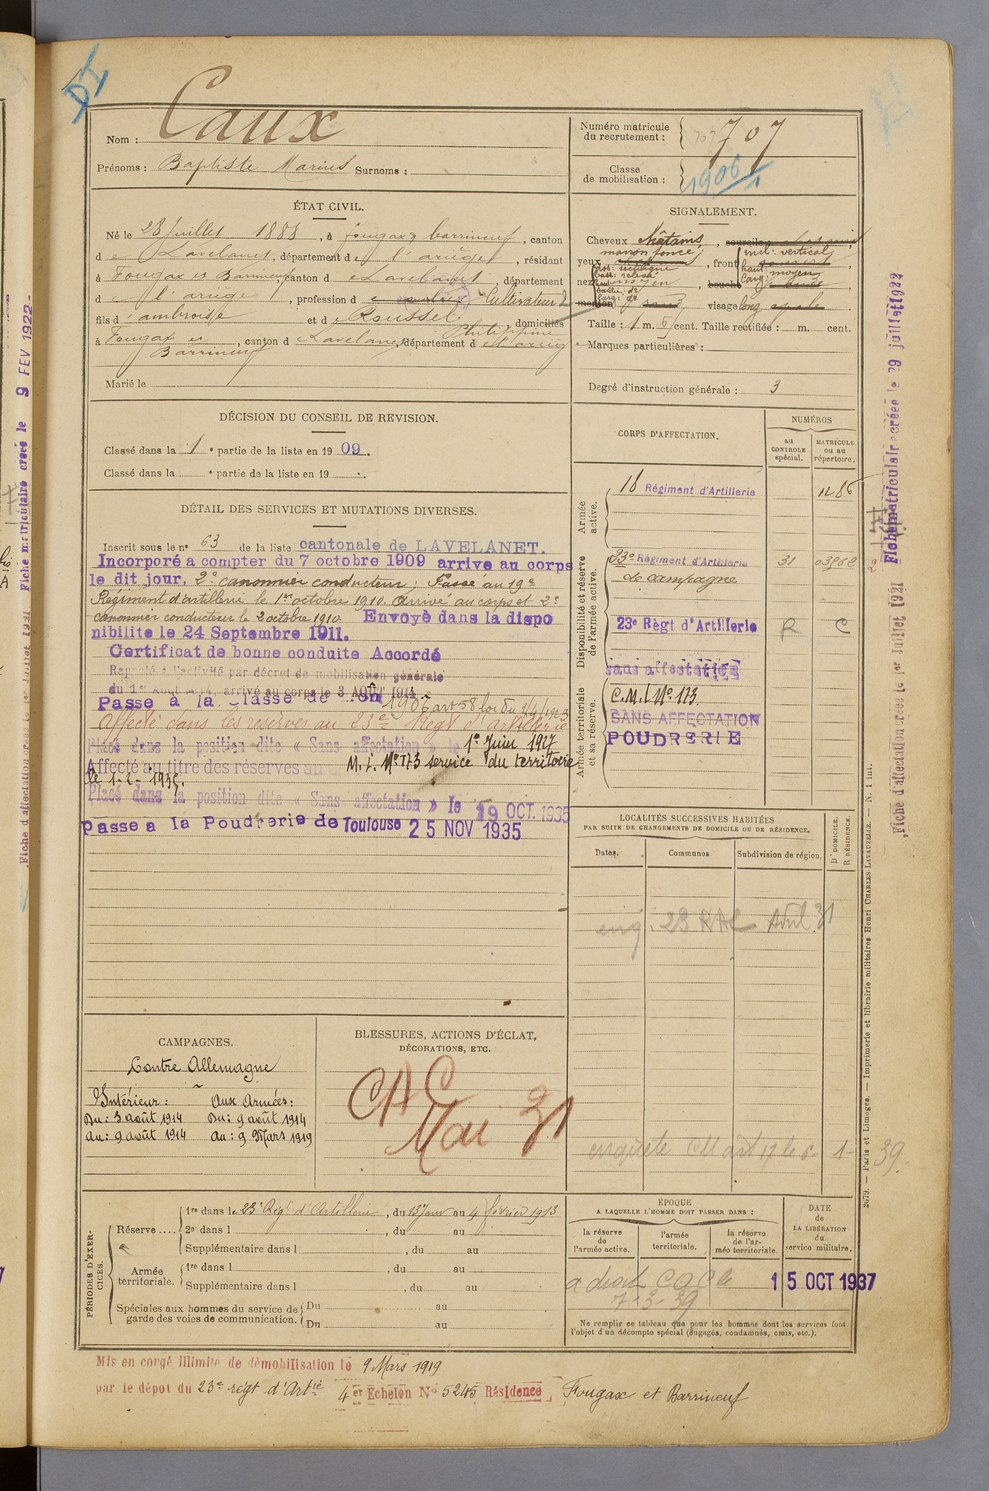 DI
Nom : Caux
Prénoms : Baptiste Marius Surnoms :
Numéro matricule du recrutement : 707
Classe de mobilisation : 1906
ÉTAT CIVIL.
Né le 28 Juillet 1888, à Fougax & Barrineuf, canton
de Lavelanet, département de l'ariège, résidant
à Fougax et Barrineuf, canton de Lavelanet, département
de l'ariège, profession de Cultivateur
fils d'ambroise et de Rousset Philippine, domiciliés
à Fougax et Barrineuf, canton de Lavelanet, département d
Marié le
SIGNALEMENT.
Cheveux châtains
marron foncé
yeux , front incl. verticale
haut. moyen
nez
visage long
Taille : 1 m. cent. Taille rectifiée : m. cent.
Marques particulières :
Degré d'instruction générale : 3
DÉCISION DU CONSEIL DE REVISION.
Classé dans la 1e partie de la liste en 1909.
Classé dans la e partie de la liste en 19 .
DÉTAIL DES SERVICES ET MUTATIONS DIVERSES.
Inscrit sous le no 63 de la liste cantonale de LAVELANET.
Incorporé a compter du 7 octobre 1909 arrive au corps
le dit jour, 2e canonnier conducteur; Passé au 19e
Régiment d'artillerie le 1er octobre 1910. Arrivé au corps et 2e
canonnier conducteur le 2 octobre 1910. Envoyé dans la dispo
nibilite le 24 Septembre 1911.
Certificat de bonne conduite Accordé
Rappelé à l'activité par décret de mobilisation générale
du 1er Août 1914, arrivé au corps le 3 AOUT 1914
Passe à la classe de 1906 art 58 loi du 1/4/1923
Affecté dans les réserves au 23e Régt d'artillerie
Placé dans la position dite « Sans affectation » le 1er Juin 1927
Affecté au titre des réserves au C. M. i. No 173 service du territoire
le 1-2-193
Placé dans la position dite « Sans affectation » le 19 OCT. 1935
passe a la Poudrerie de Toulouse 25 NOV 1935
CORPS D'AFFECTATION.
NUMÉROS
au CONTROLE spécial.
MATRICULE ou au répertoire.
Armée active.
18 Régiment d'Artillerie 1286
Disponibilité et réserve de l'armée active.
23e Régiment d'Artillerie 31
de campagne
23e Règt d'Artillerie R C
sans affectation
Armée territoriale et sa réserve.
C.M.i No 173
SANS AFFECTATION
POUDRERIE
LOCALITÉS SUCCESSIVES HABITÉES
PAR SUITE DE CHANGEMENTS DE DOMICILE OU DE RÉSIDENCE.
Dates. Communes. Subdivision de région. D. DOMICILE. R. RÉSIDENCE.
23 RAC Avril 31
CAMPAGNES.
Contre Allemagne
Intérieur : Aux Armées :
Du : 3 août 1914 Du : 9 août 1914
au : 9 août 1914 au : 9 Mars 1919
BLESSURES, ACTIONS D'ÉCLAT,
DÉCORATIONS, ETC.
CAC
Mai 31
39.
PÉRIODES D'EXERCICES.
Réserve .... 1re dans le 23e Régt d'Artillerie, du 15 Janv au 4 février 1913
2e dans l , du au
Supplémentaire dans l , du au
Armée territoriale. 1re dans l , du au
Supplémentaire dans l , du au
Spéciales aux hommes du service de garde des voies de communication. Du au
Du au
ÉPOQUE
A LAQUELLE L'HOMME DOIT PASSER DANS :
la réserve de l'armée active. l'armée territoriale. la réserve de l'armée territoriale.
DATE de LA LIBÉRATION du service militaire.
7-3-39
15 OCT 1937
Ne remplir ce tableau que pour les hommes dont les services font
l'objet d'un décompte spécial (engagés, condamnés, omis, etc.).
Mis en congé illimité de démobilisation le 9 Mars 1919
par le dépot du 23e régt d'Artie 4er Echelon No 5245 Résidence Fougax et Barrineuf
Fiche matriculaire créée le 29 juillet 1922
Fiche d'affectation créée le 1er Juillet 1921
2079. — Paris et Limoges. — Imprimerie et librairie militaires Henri CHARLES-LAVAUZELLE. — N. 1 int.
Fiche matriculaire créée le 9 FEV 1922
Fiche d'affectation créée le 1er Juillet 1921